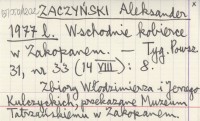 ZACZYŃSKI Aleksander
1977 r. Wschodnie kobierce
w Zakopanem. — Tyg. Powsz.
31, nr 33 (14 VIII): 8.
Zbiory Włodzimierza i Jerzego
Kulczyckich, przekazane Muzeum
Tatrzańskiemu w Zakopanem.